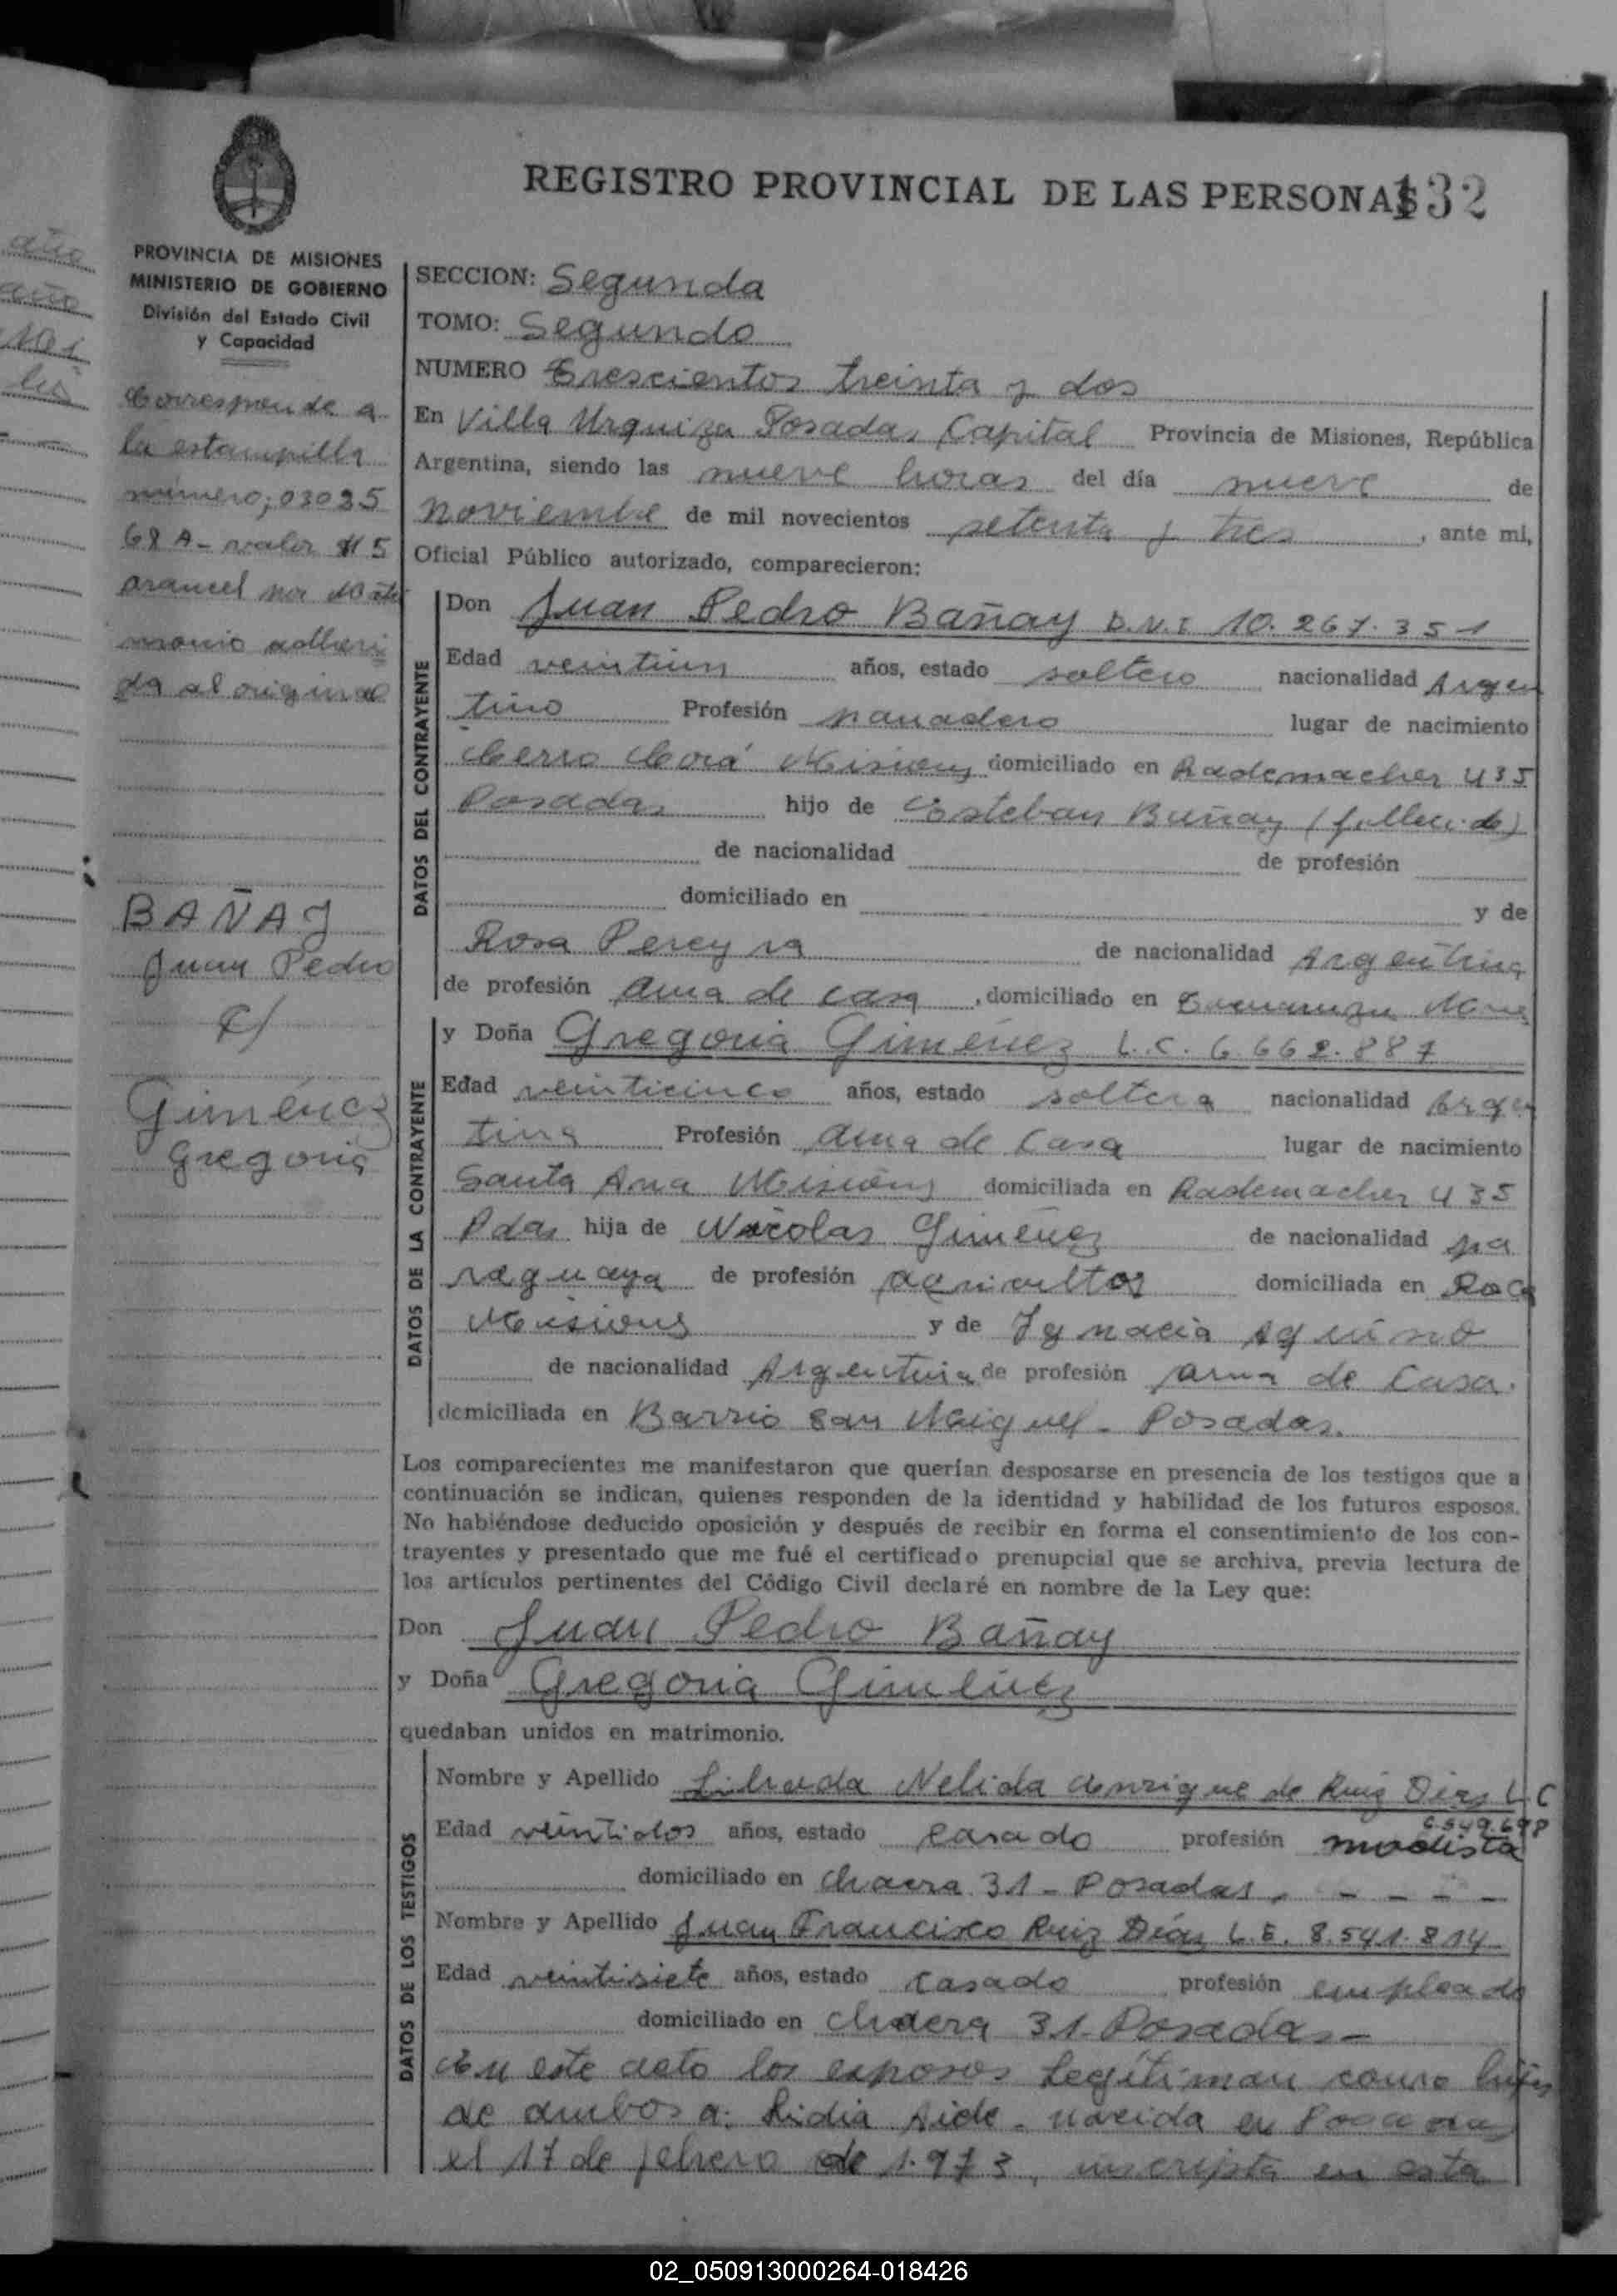 REGISTRO PROVINCIAL DE LAS PERSONAS 132
PROVINCIA DE MISIONES
MINISTERIO DE GOBIERNO
División del Estado Civil
y Capacidad
Corresponde a
la estampilla
número; 03035
68 A - valor $ 5
arancel por Matri
monio adheri
da al original
BAÑAY
Juan Pedro
c/
Giménez
Gregoria
SECCION: Segunda
TOMO: Segundo
NUMERO Trescientos treinta y dos
En Villa Urquiza Posadas Capital Provincia de Misiones, República
Argentina, siendo las nueve horas del día nueve de
noviembre de mil novecientos setenta y tres, ante mi,
Oficial Público autorizado, comparecieron:
DATOS DEL CONTRAYENTE
Don Juan Pedro Bañay D.N.I 10.267.351
Edad veintiun años, estado soltero nacionalidad Argen
tino Profesión panadero lugar de nacimiento
Cerro Corá Misiones domiciliado en Rademacher 435
Posadas hijo de Esteban Buñay (fallecido)
de nacionalidad de profesión
domiciliado en y de
Rosa Pereyra de nacionalidad Argentina
de profesión ama de casa, domiciliado en
DATOS DE LA CONTRAYENTE
y Doña Gregoria Giménez L.C. 6.662.887
Edad veinticinco años, estado soltera nacionalidad Argen
tina Profesión ama de Casa lugar de nacimiento
Santa Ana Misiones domiciliada en Rademacher 435
Pdas hija de Nicolas Giménez de nacionalidad pa
raguaya de profesión agricultor domiciliada en Roca
Misiones y de Ignacia Aquino
de nacionalidad Argentina de profesión ama de Casa.
domiciliada en Barrio San Miguel - Posadas.
Los comparecientes me manifestaron que querían desposarse en presencia de los testigos que a
continuación se indican, quienes responden de la identidad y habilidad de los futuros esposos.
No habiéndose deducido oposición y después de recibir en forma el consentimiento de los con-
trayentes y presentado que me fué el certificado prenupcial que se archiva, previa lectura de
los artículos pertinentes del Código Civil declaré en nombre de la Ley que:
Don Juan Pedro Bañay
y Doña Gregoria Giménez
quedaban unidos en matrimonio.
DATOS DE LOS TESTIGOS
Nombre y Apellido Librada Nelida Enrique de Ruiz Diaz L.C
6.549.698
Edad veintidos años, estado casado profesión modista
domiciliado en Chacra 31 - Posadas. - - - -
Nombre y Apellido Juan Francisco Ruiz Díaz L.E. 8.541.814
Edad veintisiete años, estado casado profesión empleado
domiciliado en Chacra 31. Posadas -
En este acto los esposos legitiman como hijos
de ambos a: Lidia Aide - nacida en Posadas
el 17 de febrero de 1.973, inscripta en esta
02_050913000264-018426